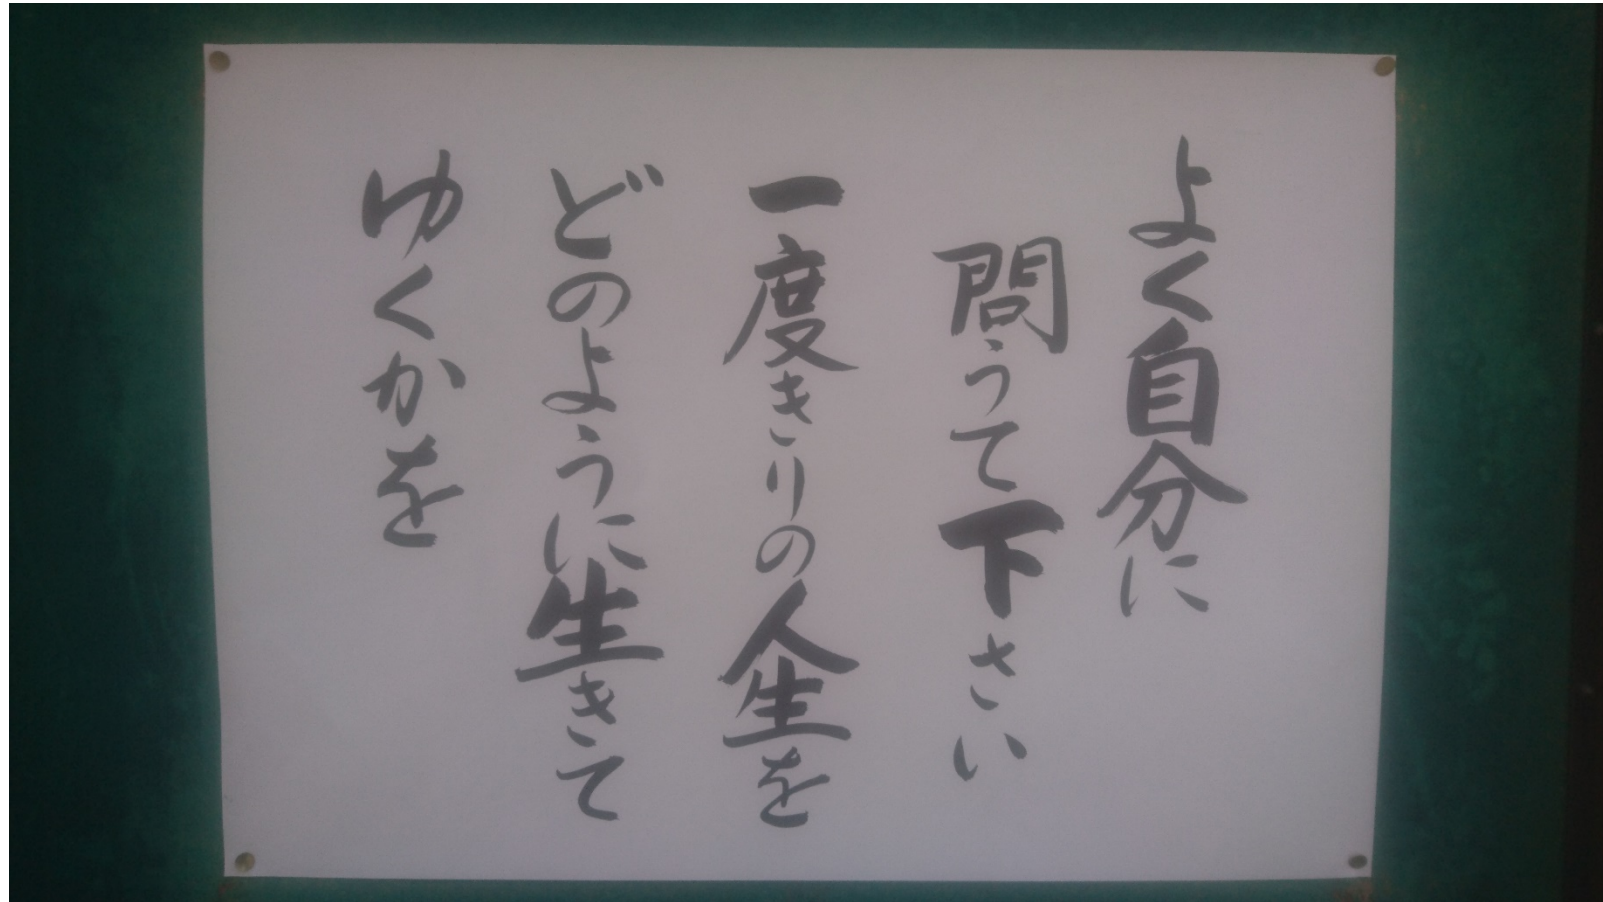 よく自分に
問うて下さい
一度きりの人生を
どのように生きて
ゆくかを